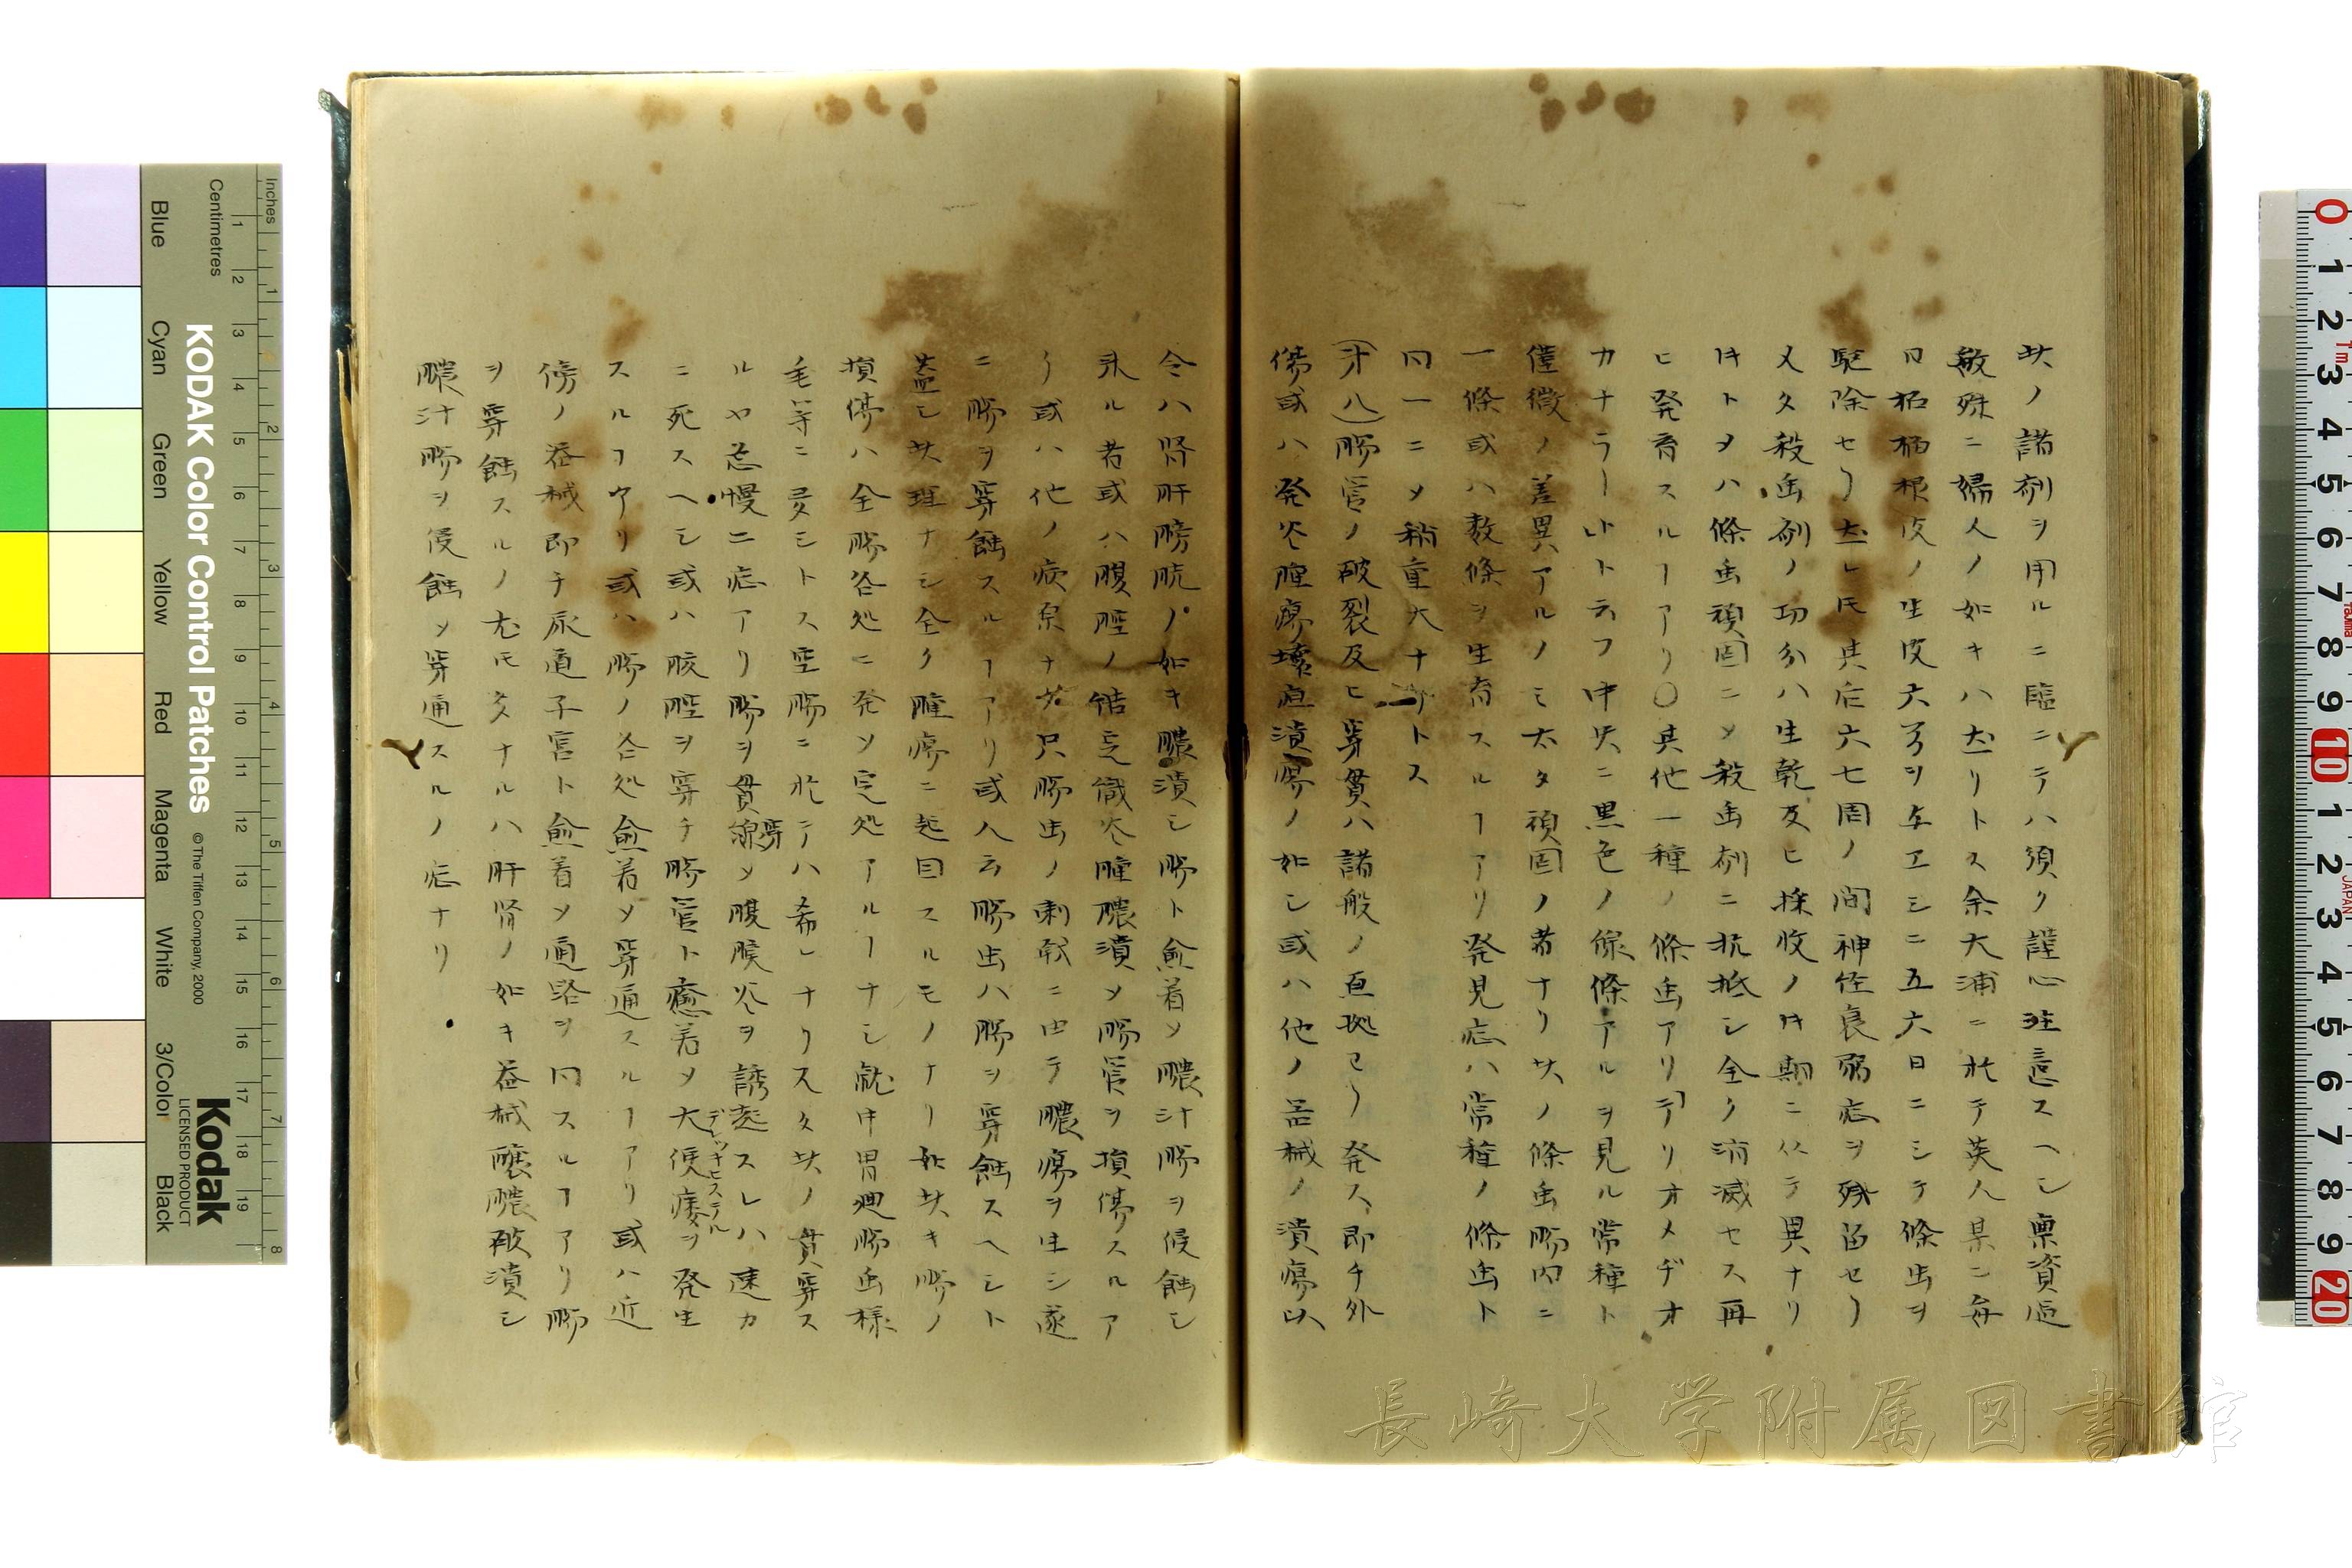 此ノ諸剤ヲ用ルニ臨ニテハ須ク謹心注意スヘシ稟資過
敏殊ニ婦人ノ如キハ尤リトス余大浦ニ於テ英人某ニ毎
日柘榴根皮ノ生皮六弓ヲ与エシニ五六日ニシテ條虫ヲ
駆除セリ尤レ𪜈其后六七周ノ間神経衰弱症ヲ残留セリ
又タ殺虫剤ノ功分ハ生乾及ヒ採收ノ𪜈期ニ仍テ異ナリ
𪜈トヲハ條虫頑固ニメ殺虫剤ニ抗抵シ全ク消滅セス再
ヒ発育スルヿアリ〇其他一種ノ條虫アリテリオメヂオ
カナラートト云フ中央ニ黒色ノ線條アルヲ見ル常種ト
僅微ノ差異アルノミ太タ頑固ノ者ナリ此ノ條虫腸内ニ
一條或ハ数條ヲ生育スルヿアリ発見症ハ常種ノ條虫ト
同一ニメ稍重大ナリトス
(第八)腸管ノ破裂及ヒ穿貫ハ諸般ノ直拠ヨリ発ス即チ外
傷或ハ発炎腫瘍壊疽潰瘍ノ如シ或ハ他ノ器械ノ潰瘍以
令ハ腎肝膀胱ノ如キ膿潰シ腸ト愈着メ膿汁腸ヲ侵蝕シ
来ル者或ハ腹腔ノ結芝織炎腫膿潰メ腸管ヲ損傷スルア
リ或ハ他ノ病原ナ共只腸虫ノ刺戟ニ由テ膿瘍ヲ生シ遂
ニ腸ヲ穿蝕スルヿアリ或人云腸虫ハ腸ヲ穿蝕スヘシト
蓋シ此理ナシ全ク腫瘍ニ起因スルモノナリ如此キ腸ノ
損傷ハ全腸各処ニ発ソ定処アルヿナシ就中胃廻腸虫様
毛等ニ夛シトス空腸ニ於テハ希レナリ又タ此ノ貫穿ス
ルヤ急慢ニ症アリ腸ヲ貫穿メ腹膜炎ヲ誘起スレハ速カ
ニ死スヘシ或ハ腹腔ヲ穿チ腸管ト癒着メ大便瘻デレッキヒステルヲ発生
スルヿアリ或ハ腸ノ各処愈着メ穿通スルヿアリ或ハ近
傍ノ器械即チ尿道子宮ト愈着メ通路ヲ同スルヿアリ腸
ヲ穿蝕スルノ尤𪜈多ナルハ肝腎ノ如キ器械醸膿破潰シ
膿汁腸ヲ侵蝕メ穿通スルノ症ナリ
長崎大学附属図書館
KODAK Color Control Patches
© The Tiffen Company, 2000
Kodak
LICENSED PRODUCT
Inches
Centimetres
Blue
Cyan
Green
Yellow
Red
Magenta
White
3/Color
Black